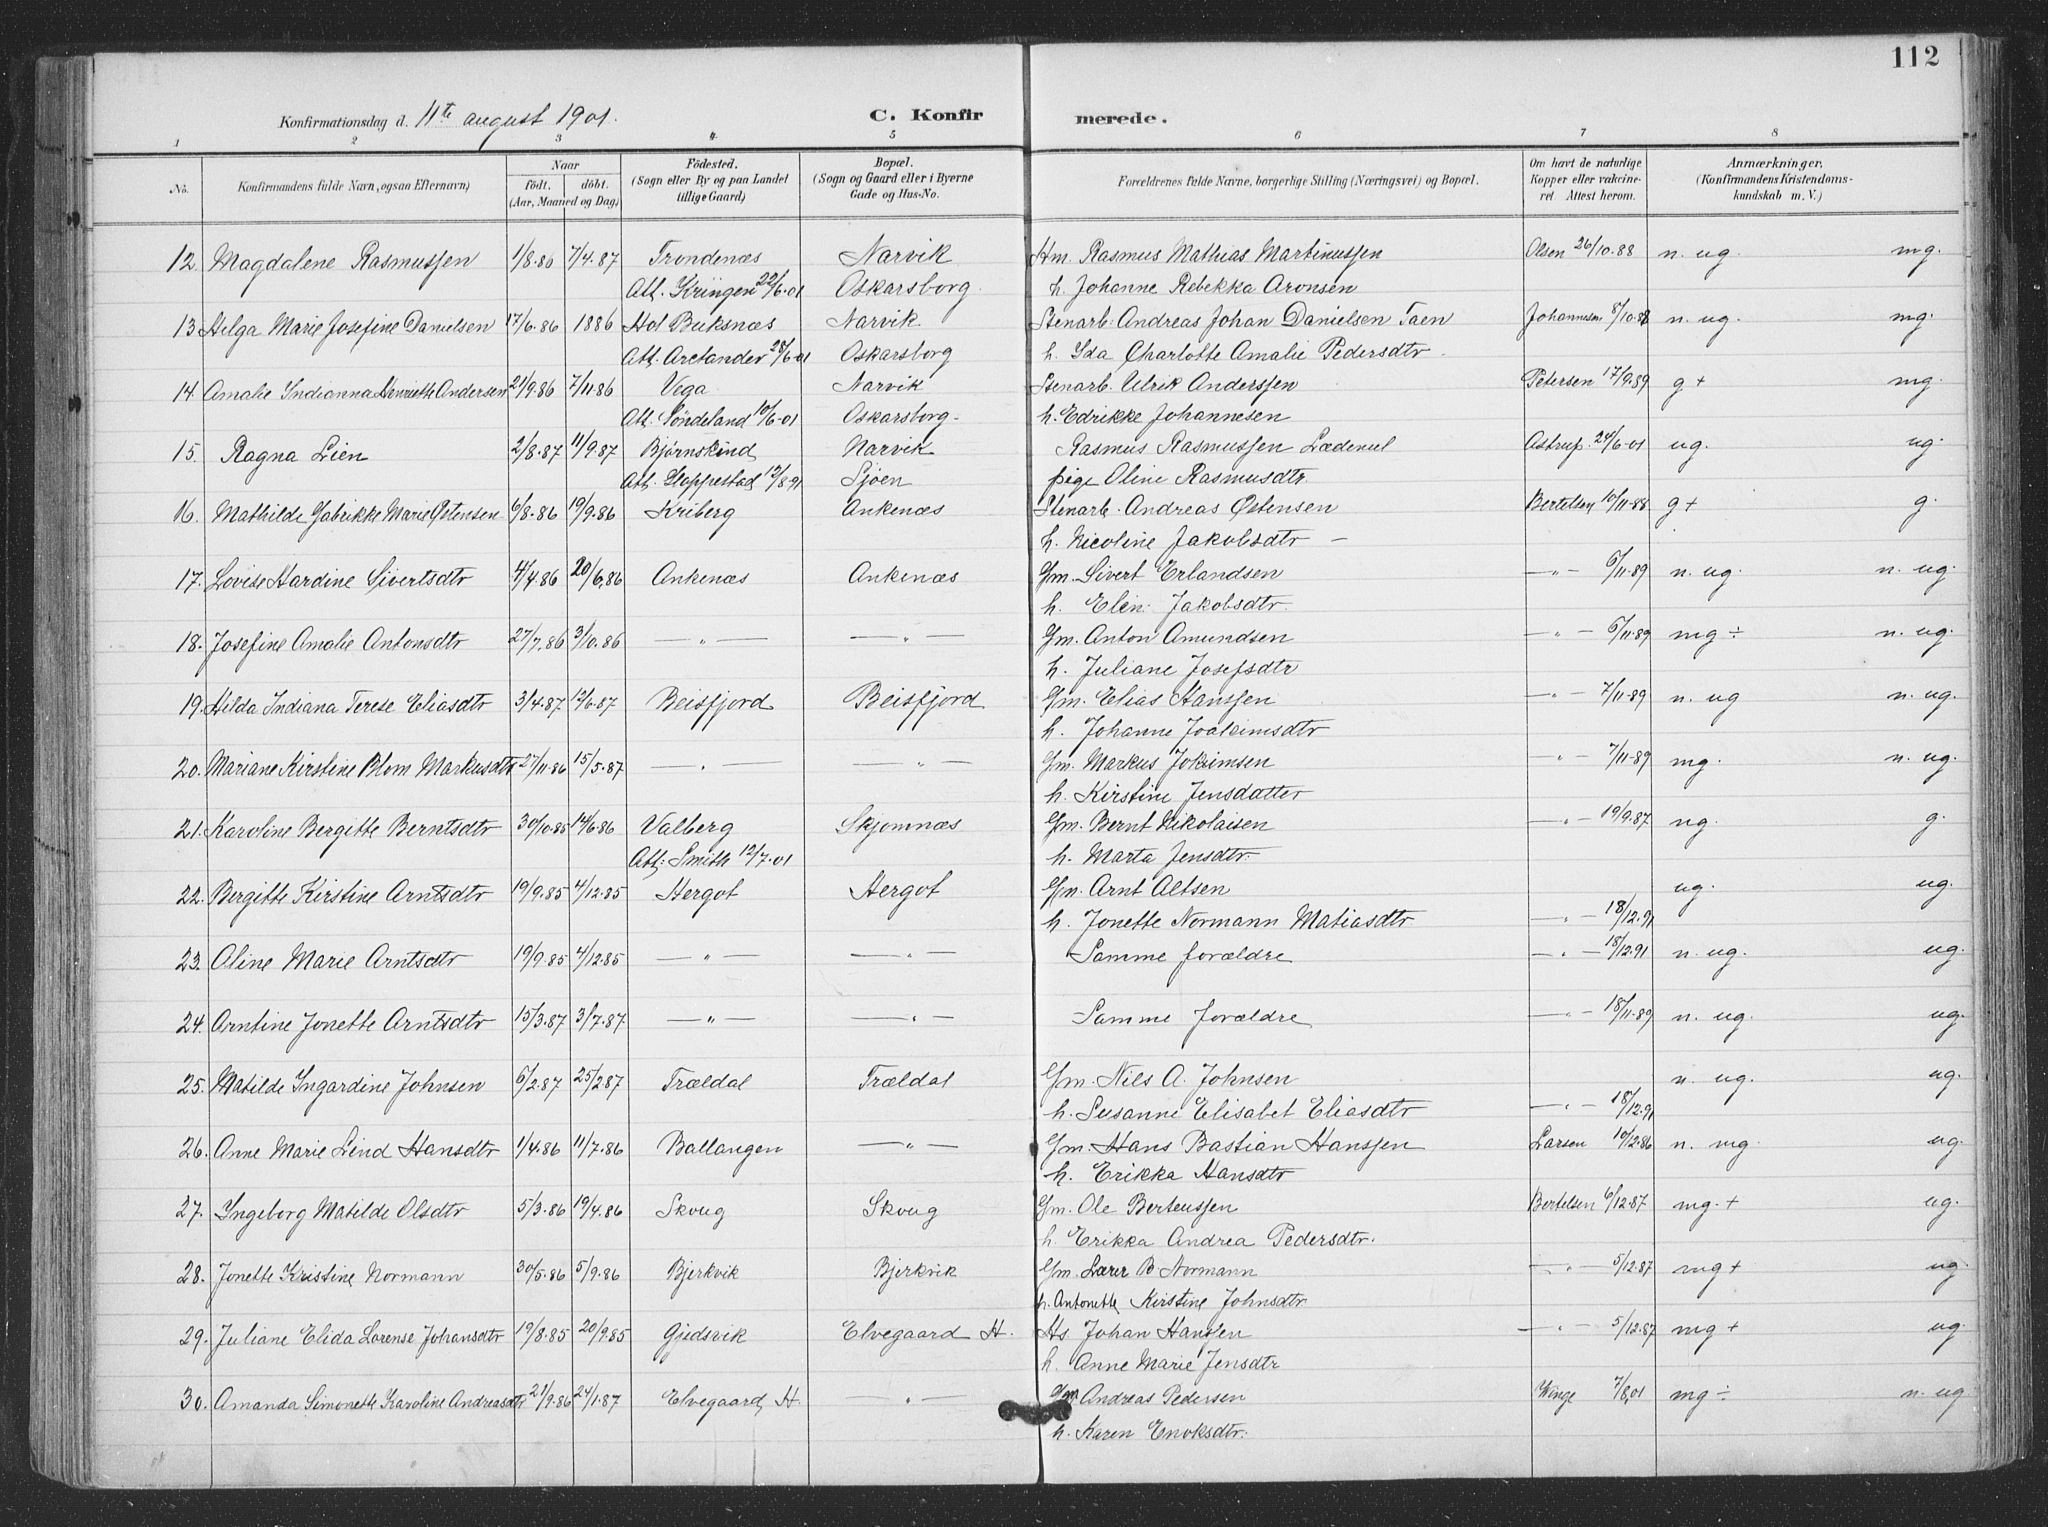 112
Konfirmationsdag d. 11te august 1901. C. Konfirmerede.
1 2 3 4 5 6 7 8
No. Konfirmandens fulde Navn, ogsaa Efternavn) Naar födt. döbt. (Aar, Maaned og Dag) Födested. (Sogn eller By og paa Landet tillige Gaard) Bopæl. (Sogn og Gaard eller i Byerne Gade og Hus-No. Forældrenes fulde Navne, borgerlige Stilling (Næringsvei) og Bopæl. Om havt de naturlige Kopper eller vakcineret. Attest herom. Anmærkninger. (Konfirmandens Kristendomskundskab m. V.)
12. Magdalene Rasmussen 1/8.86 7/4.87 Trondenæs Narvik Hm. Rasmus Mathias Martinussen Olsen 26/10.88 n. ug. mg.
Att. Kringen 22/6-01 Oskarsborg. h. Johanne Rebekka Aronsen
13. Helga Marie Josefine Danielsen 17/6.86 1886 Hol Buksnæs Narvik. Stenarb. Andreas Johan Danielsen Taen Johannesen 8/10.88 n. ug. mg.
Att. Arctander 28/6-01 Oskarsborg h. Ida Charlotte Amalie Pedersdtr.
14. Amalie Indianna Henriette Andersen 21/9.86 7/11.86 Vega Narvik Stenarb. Ulrik Anderssen Petersen 17/9.89 g + mg.
Att. Söndeland 10/6-01 Oskarsborg. h. Edrikke Johannesen
15. Ragna Lien 2/8.87 11/9.87 Bjørnskind Narvik Rasmus Rasmussen Lædenul Astrup. 24/6-01 ug. ug.
Att. Stoppestad 12/8.91 Sjøen pige Oline Rasmusdtr.
16. Mathilde Gabrikke Marie Østensen 6/8.86 19/9.86 Kriberg Ankenæs Stenarb. Andreas Østensen Bertelsen 10/11.88 g + g.
h. Nicoline Jakobsdtr –
17. Lovise Hardine Sivertsdtr 4/4.86 20/6.86 Ankenæs Ankenæs Gm. Sivert Erlandsen —"— 6/11.89 n. ug. n. ug.
h. Elen Jakobsdtr.
18. Josefine Amalie Antonsdtr 27/7.86 3/10.86 —"— —"— Gm. Anton Amundsen —"— 6/11.89 mg ÷ n. ug.
h. Juliane Josefsdtr
19. Hilda Indiana Terese Eliasdtr 3/4.87 12/6.87 Beisfjord Beisfjord Gm. Elias Hanssen —"— 7/11.89 n. ug n. ug.
h. Johanne Joakimsdtr
20. Mariane Kirstine Blom Markusdtr 27/11.86 15/5.87 —"— —"— Gm. Markus Jokimsen "— 7/11.89 mg. n. ug.
h. Kirstine Jensdatter
21. Karoline Bergitte Berntsdtr 30/10.85 14/6.86 Valberg Skjomnæs Gm. Bernt Nikolaisen —"— 19/9.87 ng. g.
Att: Smith 12/7.01 h. Marta Jensdtr.
22. Bergitte Kirstine Arntsdtr 19/9.85 4/12.85 Hergot Hergot Gm. Arnt Altsen ug. ug.
h. Jonette Normann Matiasdtr —"— 18/12.91
23. Aline Marie Arntsdtr 19/9.85 4/12.85 —"— —"— Samme forældre —"— 18/12.91 n. ug. ug.
24. Arntine Jonette Arntsdtr 15/3.87 3/7.87 —"— —"— Samme forældre —"— 18/11.89 n. ug. ug.
25. Matilde Ingardine Johnsen 6/2.87 25/2.87 Trældal Trældal Gm. Nils A. Johnsen n. ug. ug.
h. Susanne Elisabet Eliasdtr —"— 18/12.91
26. Anne Marie Lind Hansdtr 1/4.86 11/7.86 Ballangen —"— Gm. Hans Bastian Hanssen Larsen 10/12.86 n. mg. ug.
h. Erikka Hansdtr
27. Ingeborg Matilde Olsdtr 5/3.86 19/4.86 Skoug Skoug Gm. Ole Berteussen Bertelsen 6/12.87 mg. + ug.
h. Erikka Andrea Pedersdtr.
28. Jonette Kristine Normann 30/5.86 5/9.86 Bjerkvik Bjerkvik Gm. Lærer B Normann —"— 5/12.87 mg + ug
h. Antonette Kirstine Johnsdtr
29. Juliane Elida Lorense Johansdtr 19/8.85 20/9.85 Gjedsvik Elvegaard H. Hs Johan Hanssen —"— 5/12.87 mg + ug.
h. Anne Marie Jensdtr
30. Amanda Simonette Karoline Andreasdtr 21/9.86 24/1.87 Elvegaard, H. "— Gm Andreas Pedersen Winge 7/8.01 mg ÷ n. ug.
h. Karen Enoksdtr.